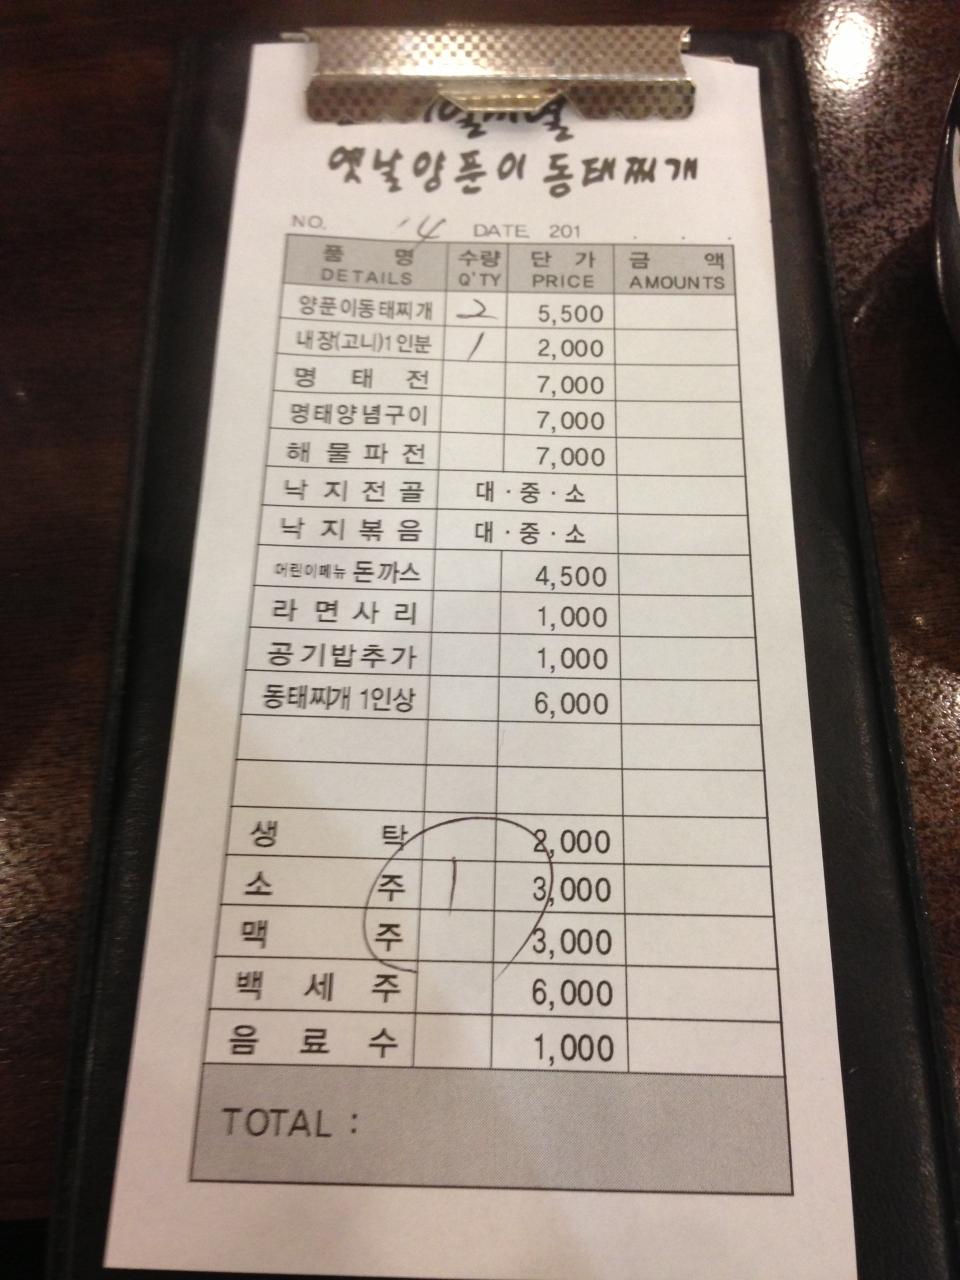 옛날양푼이동태찌개
NO. 14 DATE 201 . . .
품 명 수량 단 가 금 액
DETAILS Q'TY PRICE AMOUNTS
양푼이동태찌개 2 5,500
내장(고니)1인분 1 2,000
명 태 전 7,000
명태양념구이 7,000
해 물 파 전 7,000
낙 지 전 골 대 · 중 · 소
낙 지 볶 음 대 · 중 · 소
어린이메뉴 돈까스 4,500
라 면 사 리 1,000
공기밥추가 1,000
동태찌개 1인상 6,000
생 탁 2,000
소 주 1 3,000
맥 주 3,000
백 세 주 6,000
음 료 수 1,000
TOTAL :